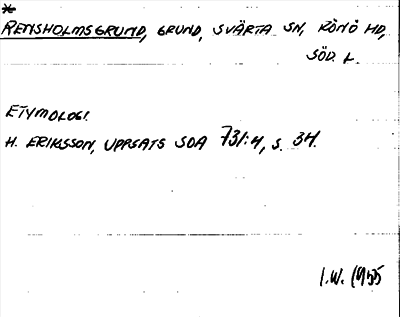 *
RENSHOLMSGRUND, GRUND, SVÄRTA SN, RÖNÖ HD,
SÖD. L.
ETYMOLOGI.
H. ERIKSSON, UPPSATS SOA 731:4, S. 34.
I.W. 1955